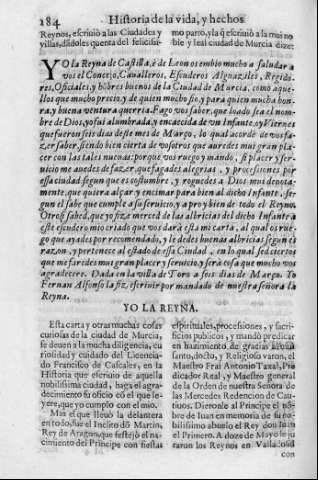 184 Historia de la vida, y hechos
Reynos, escriuiò a las Ciudades y
villas, dádoles quenta del felicissi-
mo parto, y la q̃ escriuiò a la mui no
ble y leal ciudad de Murcia dize:
YO la Reyna de Castilla, è de Leon os embio mucho a saludar a
vos el Concejo, Caualleros, Escuderos Alguaziles, Regido-
res, Oficiales, y hõbres buenos de la Ciudad de Murcia, como aque-
llos que mucho precio, y de quien mucho fio, y para quien mucha hon-
ra, y buena ventura querria. Fago vos saber, que loado sea el nom-
bre de Dios, yo fui alumbrada, y encaecida de vn Infante, oy Viernes
que fueron seis dias deste mes de Março, lo qual acordè de vos fa-
zer saber, siendo bien cierta de vosotros que auredes mui gran pla-
cer con las tales nueuas: por que vos ruego y mando, si placer y ser-
uicio me auedes de fazer, que fagades alegrias, y processiones por
essa ciudad segun que es costumbre, y roguedes a Dios mui deuota-
mente, que quiera alçar y encimar para bien al dicho Infante, se-
gun el sabe que cumple a su seruicio, y a pro y bien de todo el Reyno.
Otrosi sabed, que yo fize merced de las albricias del dicho Infante a
este escudero mio criado que vos darà esta mi carta, al qual os rue-
go que ayades por recomendado, y le dedes buenas albricias segun es
razon, y pertenece al estado de essa Ciudad, en lo qual sed ciertos
que me faredes mui gran placer y seruicio, y serà cosa que mucho vos
agradecere. Dada en la villa de Toro a seis dias de Março. Yo
Fernan Alfonso la fiz escriuir por mandado de nuestra señora la
Reyna.
YO LA REYNA.
Esta carta y otras muchas cosas
curiosas de la ciudad de Murcia,
se deuen a la mucha diligencia, cu
riosidad y cuidado del Licencia-
do Francisco de Cascales, en la
Historia que escriuio de aquella
nobilissima ciudad, haga el agra-
decimiento su oficio cõ el que le-
yere, que yo cumplo con el mio.
Mas el que lleuò la delantera
en todo, fue el Inclito dõ Martin,
Rey de Aragon, que festejò el na-
cimiento del Principe con fiestas
espirituales, processiones, y sacri-
ficios publicos, y mandò predicar
en hazimiento de gracias al
santo, docto, y Religioso varon, el
Maestro Frai Antonio Taxal, Pre
dicador Real, y Maestro general
de la Orden de nuestra Señora de
las Mercedes Redencion de Cau-
tiuos. Dieronle al Principe el nõ-
bre de Iuan en memoria de su no-
bilissimo abuelo el Rey don Iuan
el Primero. A doze de Mayo ju
raron los Reynos en Valladolid
con